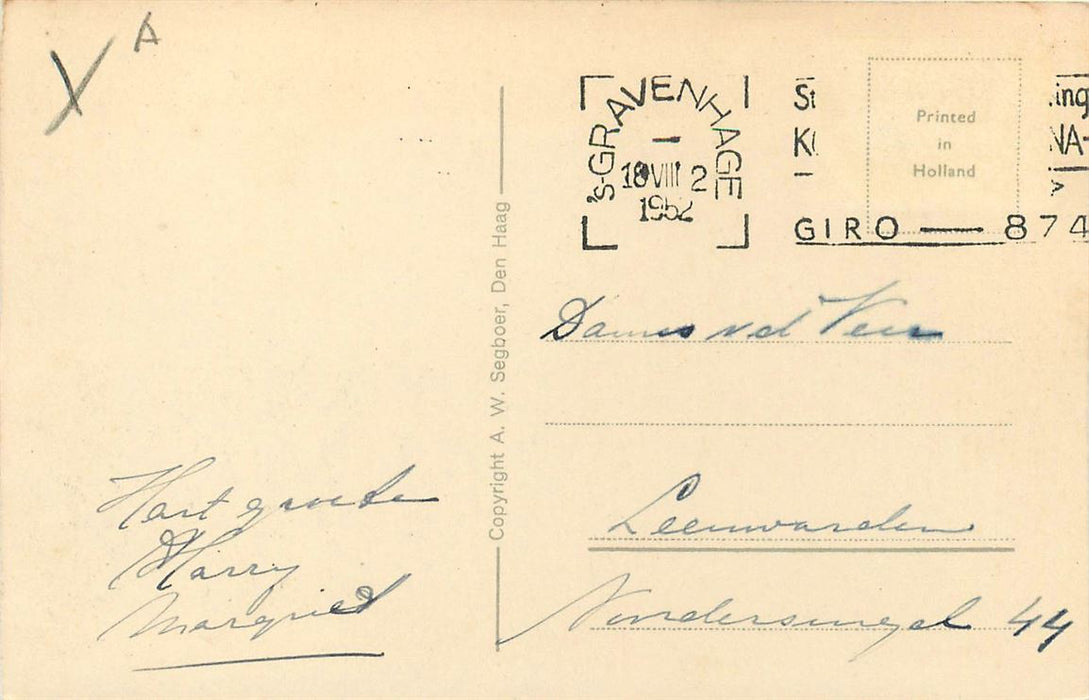 X A
's-GRAVENHAGE
18 VIII 2
1952
GIRO — 874
Printed
in
Holland
Copyright A. W. Segboer, Den Haag
Dames v d Veer
Leeuwarden
Noordersingel 44
Hart groeten
Harry
Margriet